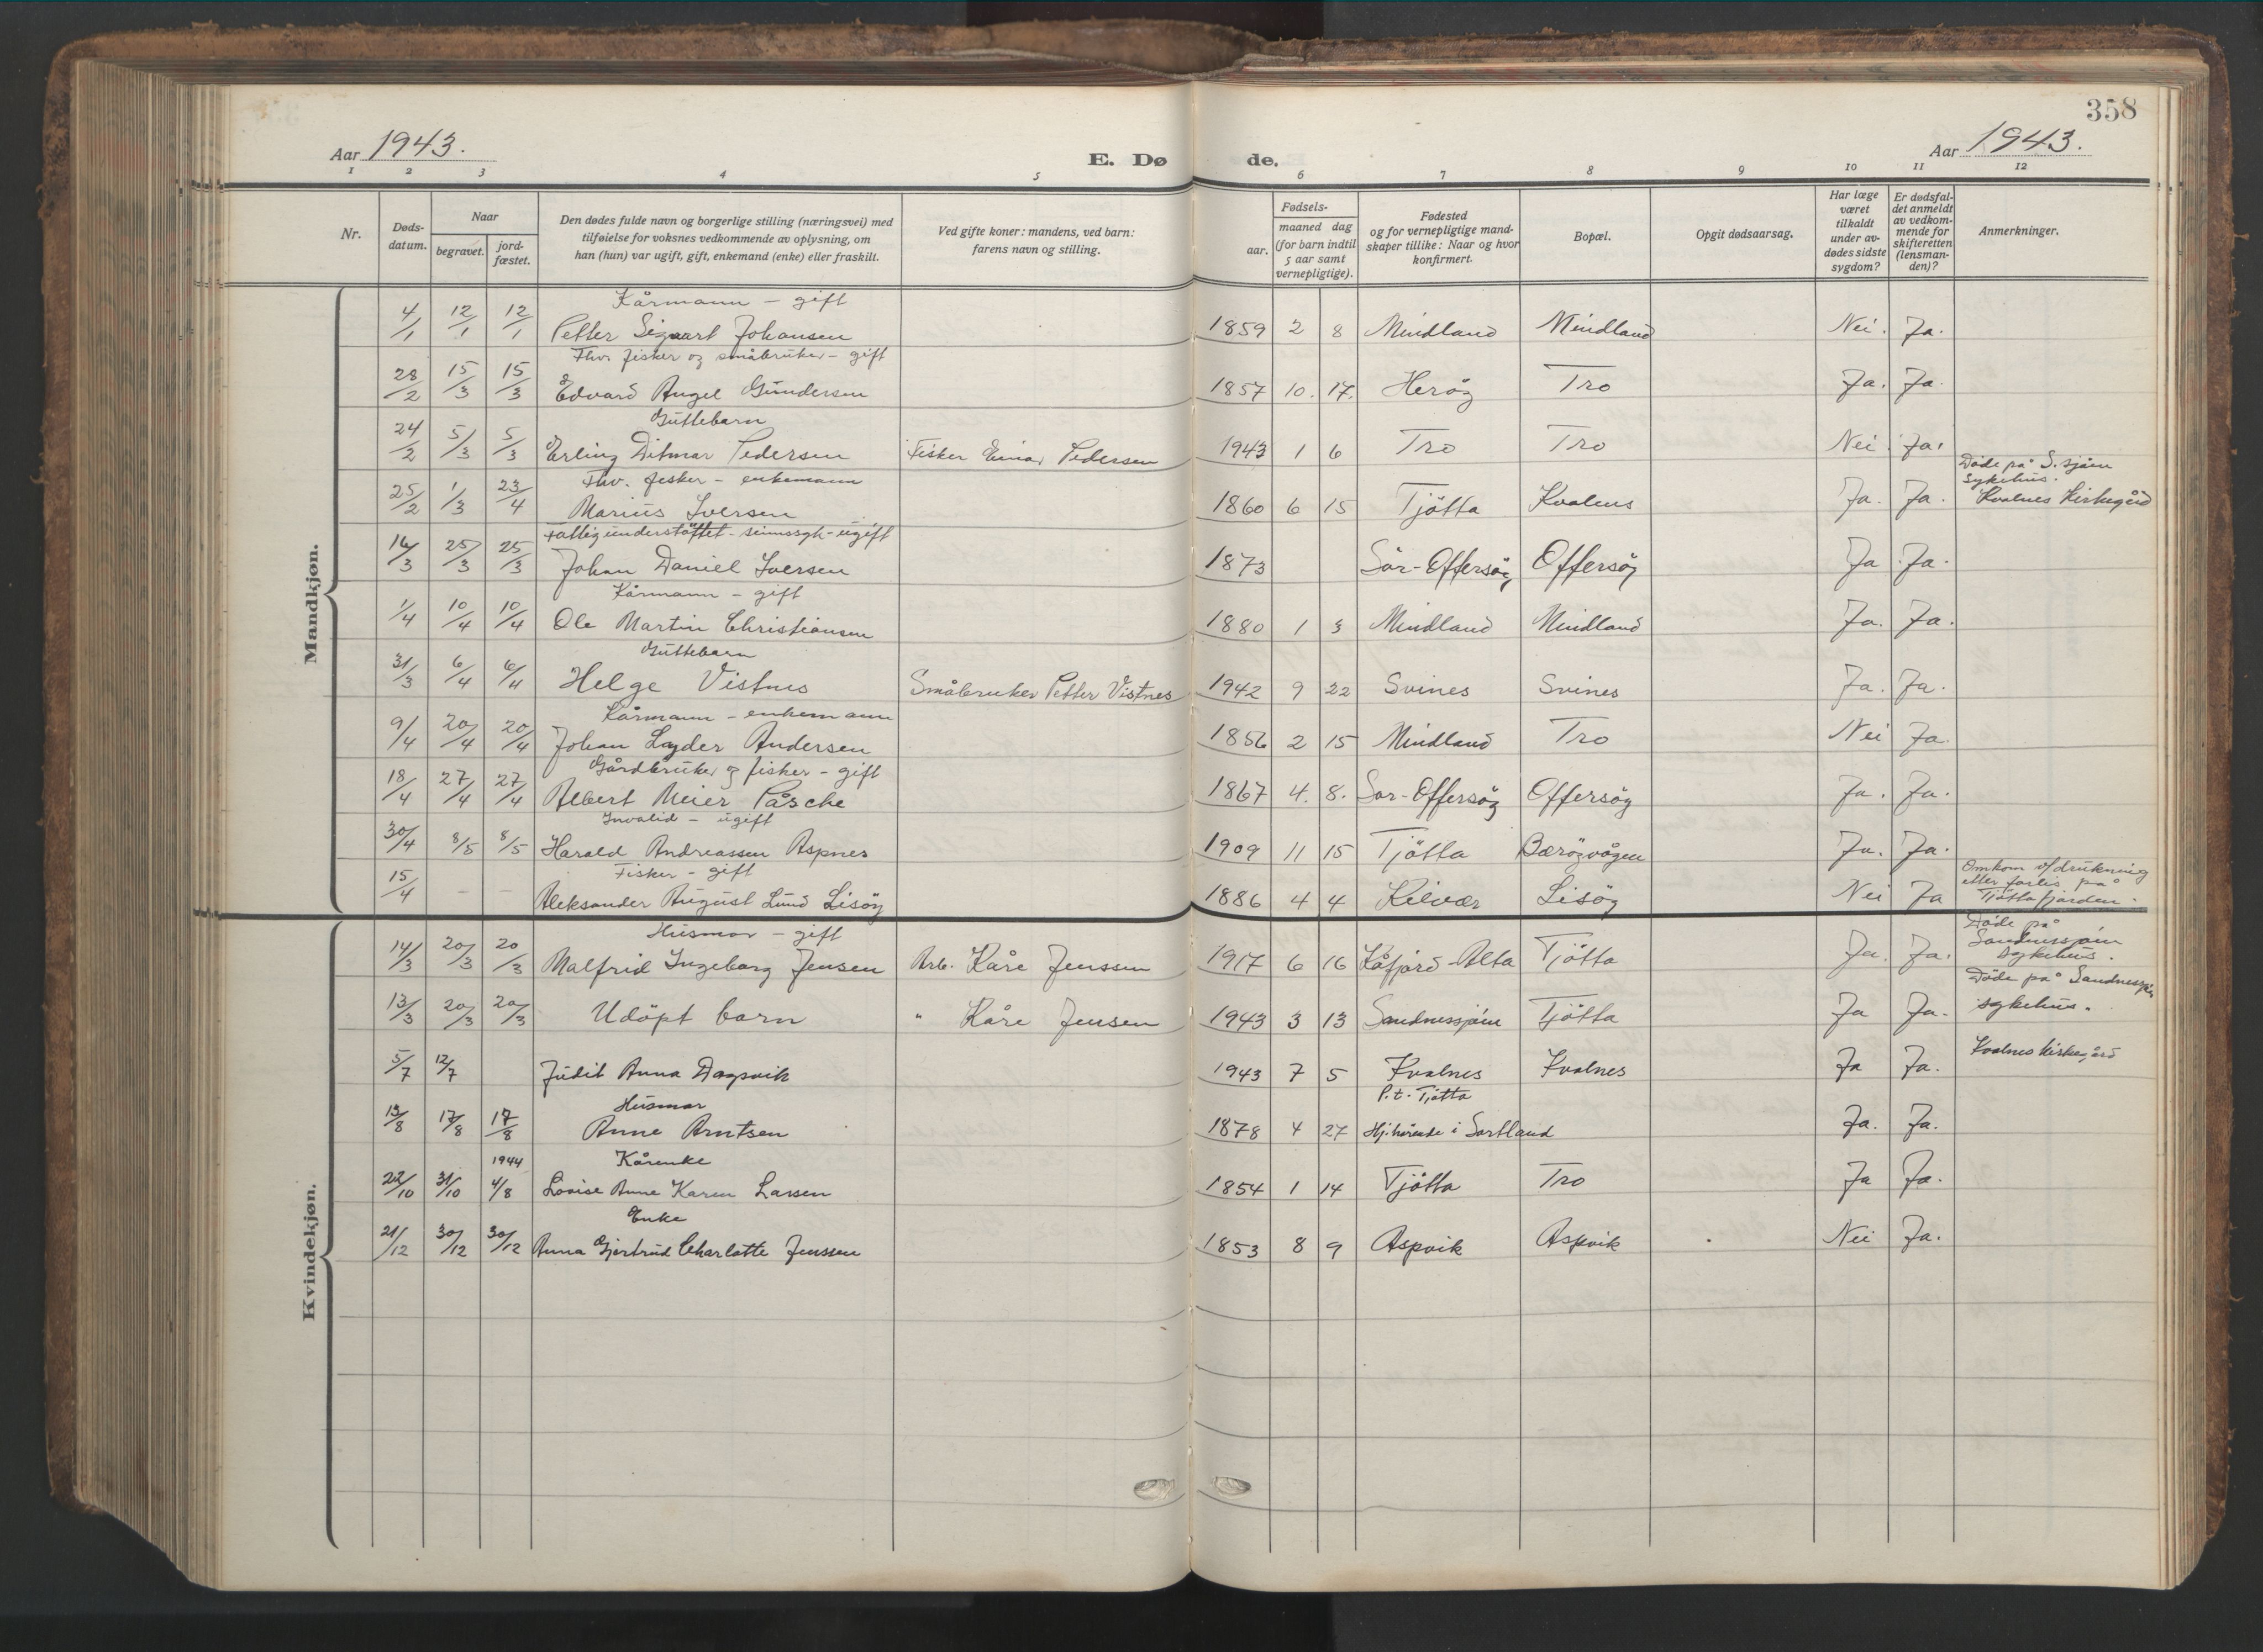 358
Aar 1943. E. Dø de. Aar 1943.
1 2 3 4 5 6 7 8 9 10 11 12
Nr. Døds-datum. Naar begravet. jord-fæstet. Den dødes fulde navn og borgerlige stilling (næringsvei) med tilføielse for voksnes vedkommende av oplysning, om han (hun) var ugift, gift, enkemand (enke) eller fraskilt. Ved gifte koner: mandens, ved barn: farens navn og stilling. Fødsels- aar. maaned dag (for barn indtil 5 aar samt vernepligtige). Fødested og for vernepligtige mand-skaper tillike: Naar og hvor konfirmert. Bopæl. Opgit dødsaarsag. Har læge været tilkaldt under av-dødes sidste sygdom? Er dødsfal-det anmeldt av vedkom-mende for skifteretten (lensman-den)? Anmerkninger.
Mandkjøn.
Kårmann - gift
4/1 12/1 12/1 Petter Sigvart Johansen 1859 2 8 Mindland Mindland Nei. Ja.
Fhv. fisker og småbruker - gift
28/2 15/3 15/3 Edvard Angel Gundersen 1857 10. 17. Herøy Tro Ja. Ja.
Guttebarn
24/2 5/3 5/3 Erling Ditmar Pedersen Fisker Einar Pedersen 1943 1 6 Tro Tro Nei. Ja.
Fhv. fisker - enkemann
25/2 1/3 23/4 Marius Iversen 1860 6 15 Tjötta Kvalnes Ja. Ja. Döde på S.sjöen Sykehus. Kvalnes Kirkegård
Fattigunderstöttet - sinnssyk - ugift
16/3 25/3 25/3 Johan Daniel Iversen 1873 Sör-Offersöy Offersöy Ja Ja.
Kårmann - gift
1/4 10/4 10/4 Ole Martin Christiansen 1880 1 3 Mindland Mindland Ja. Ja.
Guttebarn
31/3 6/4 6/4 Helge Vistnes Småbruker Petter Vistnes 1942 9 22 Svines Svines Ja. Ja.
Kårmann - enkemann
9/4 20/4 20/4 Johan Lyder Andersen 1856 2 15 Mindland Tro Nei Ja.
Gårdbruker og fisker - gift
18/4 27/4 27/4 Albert Meier Påsche 1867 4. 8. Sör-Offersöy Offersöy Ja. Ja.
Invalid - ugift
30/4 8/5 8/5 Harald Andreassen Aspnes 1909 11 15 Tjötta Bæröyvågen Ja. Ja.
Fisker - gift
15/4 - - Aleksander August Lund Lisöy 1886 4 4 Kilvær Lisöy Nei Ja Omkom v/drukning etter forlis på Tjöttafjorden.
Kvindekjøn.
Husmor - gift
14/3 20/3 20/3 Malfrid Ingeborg Jensen Arb. Kåre Jenssen 1917 6 16 Kåfjord-Alta Tjötta Ja. Ja. Döde på Sandnessjöen Sykehus.
13/3 20/3 20/3 Udöpt barn " Kåre Jensen 1943 3 13 Sandnessjöen Tjötta Ja Ja. Döde på Sandnessjöen sykehus.
5/7 12/7 Judit Anna Dagsvik 1943 7 5 Kvalnes Kvalnes Ja Ja. Kvalnes kirkegård
Husmor P.t. Tjötta
13/8 17/8 17/8 Anne Arntsen 1878 4 27 Hj.hörende i Sortland Ja. Ja.
1944 Kårenke
22/10 31/10 4/8 Lovise Anne Karen Larsen 1854 1 14 Tjötta Tro Ja Ja.
Enke
21/12 30/12 30/12 Anna Gjertrud Charlotte Jenssen 1853 8 9 Aspvik Aspvik Nei Ja.